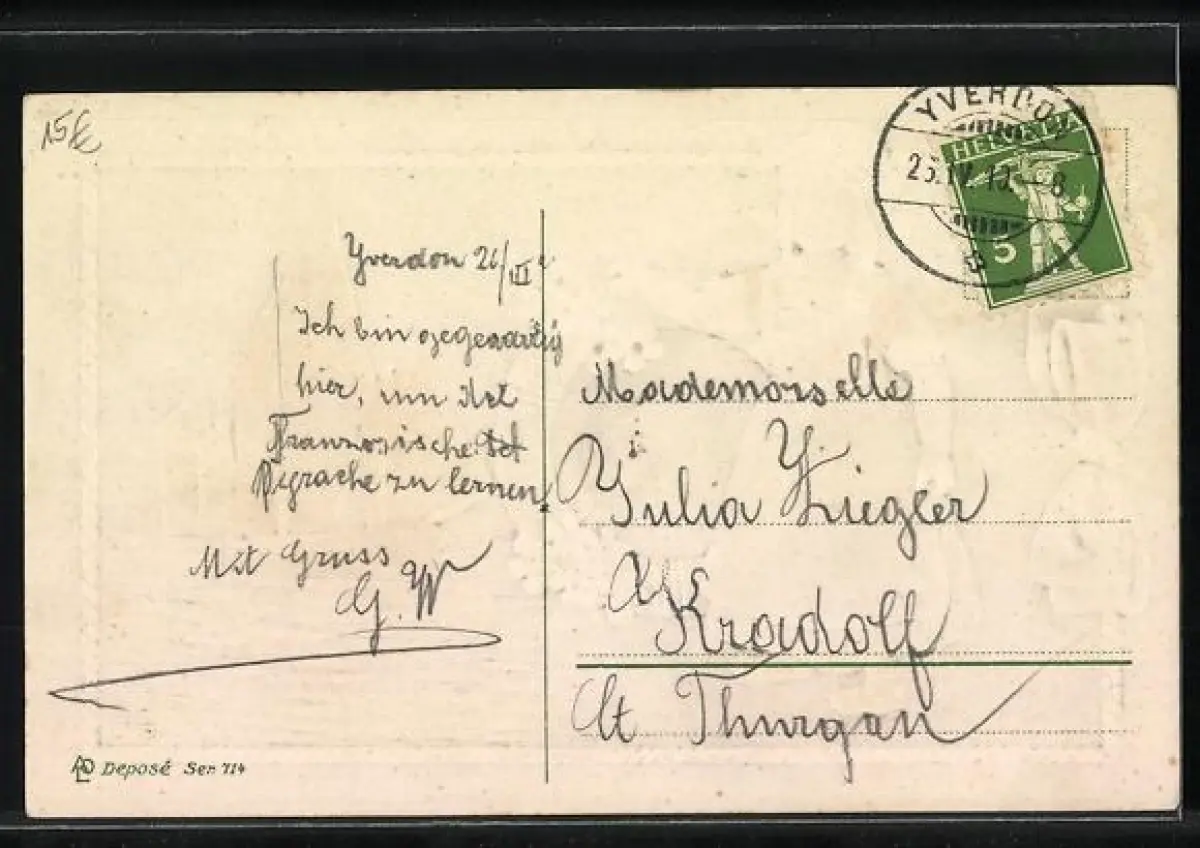 15
YVERDO
HELVETIA
5
Yverdon 26/III
Ich bin gegenwärtig
hier, um det
Französische
Sprache zu lernen
Mit Gruss
G. W
Mademoiselle
Julia Ziegler
Kradolf
Ct Thurgau
Deposé Ser. 714